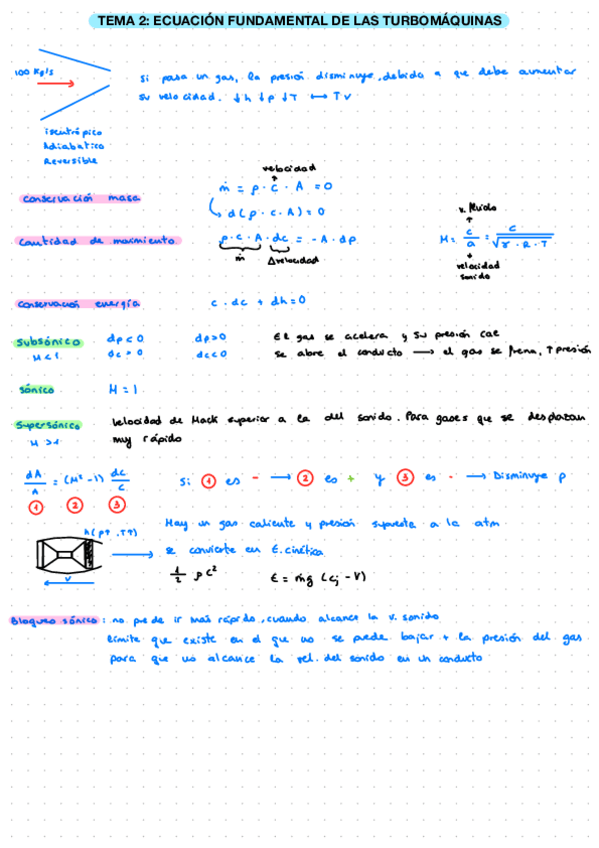 TEMA 2: ECUACIÓN FUNDAMENTAL DE LAS TURBOMÁQUINAS
100 Kg/s
si pasa un gas, la presión disminuye, debido a que debe aumentar
su velocidad. ↓h ↓p ↓T ⟷ ↑v
isentrópico
Adiabatico
Reversible
velocidad
conservación masa
ṁ = ρ · c · A = 0
d(ρ · c · A) = 0
cantidad de movimiento
ρ · c · A · dc = -A · dp
ṁ
Δvelocidad
v. fluido
M = c/a = c/√(γ · R · T)
velocidad
sonido
conservación energía
c · dc + dh = 0
subsónico dp < 0 dp > 0 El gas se acelera y su presión cae
M < 1 dc > 0 dc < 0 se abre el conducto → el gas se frena, ↑ presión
sónico M = 1
supersónico velocidad de Mack superior a la del sonido. Para gases que se desplazan
M > 1 muy rápido
dA/A = (M² - 1) dc/c
1 2 3
Si 1 es - → 2 es + y 3 es - → Disminuye p
h(p↑, T↑)
Hay un gas caliente y presión supuesta a la atm
se convierte en E. cinética
1/2 ρ c²
E = ṁg (cj - V)
v
Bloqueo sónico: no puede ir más rápido, cuando alcance la v. sonido
límite que existe en el que no se puede bajar + la presión del gas
para que no alcance la vel. del sonido en un conducto